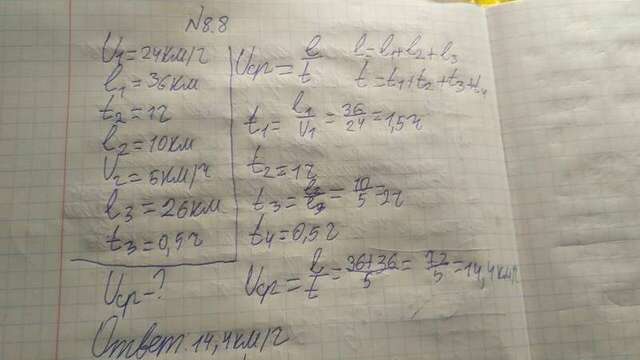 N8.8
V1=24км/ч
l1=36км
t2=1ч
l2=10км
V2=5км/ч
l3=26км
t3=0,5ч
Vср-?
Vср=l/t l=l1+l2+l3
t=t1+t2+t3+t4
t1=l1/V1=36/24=1,5ч
t2=1ч
t3= =10/5=2ч
t4=0,5ч
Vср=l/t=36+36/5=72/5=14,4км/ч
Ответ:14,4км/ч